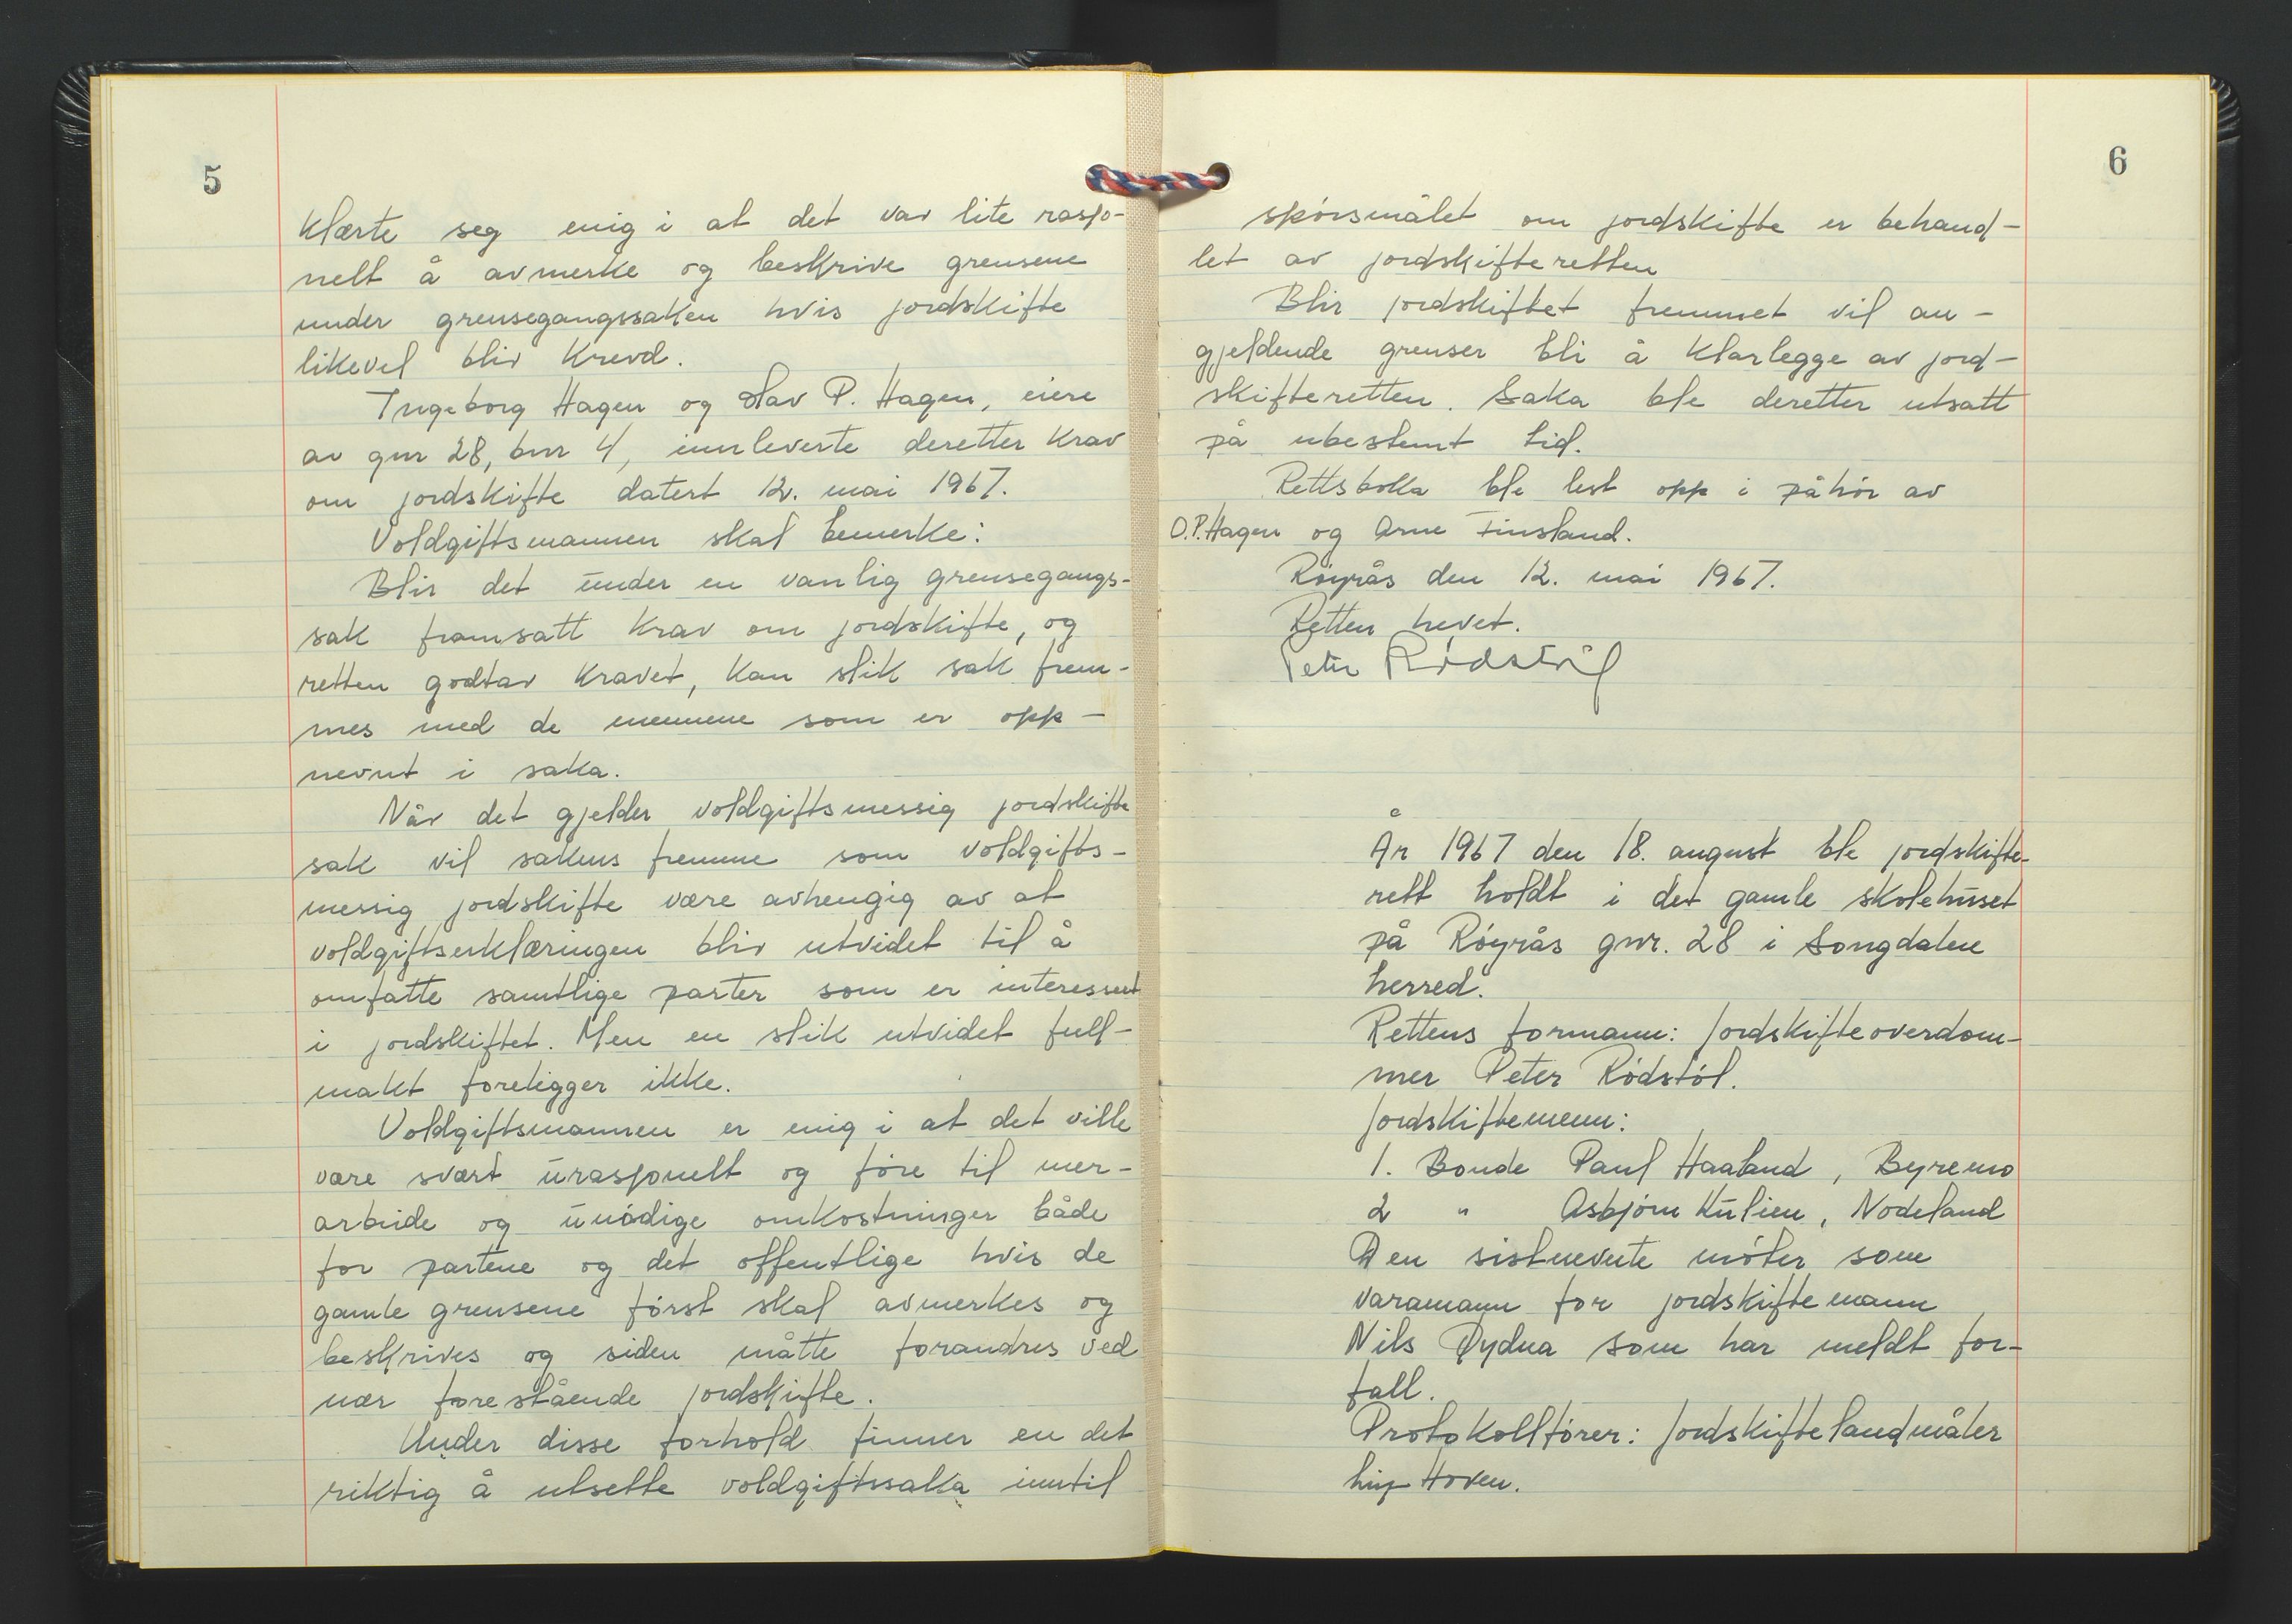 5
klærte seg enig i at det var lite rasjo-
nelt å avmerke og beskrive grensene
under grensegangssaken hvis jordskifte
likevel blir krevd.
Ingeborg Hagen og Olav P. Hagen, eiere
av gnr 28, bnr 4, innleverte deretter krav
om jordskifte datert 12. mai 1967.
Voldgiftsmannen skal bemerke:
Blir det under en vanlig grensegangs-
sak framsatt krav om jordskifte, og
retten godtar kravet, kan slik sak frem-
mes med de mennene som er opp-
nevnt i saka.
Når det gjelder voldgiftsmessig jordskifte
sak vil sakens fremme som voldgifts-
messig jordskifte være avhengig av at
voldgiftserklæringen blir utvidet til å
omfatte samtlige parter som er interessert
i jordskiftet. Men en slik utvidet full-
makt foreligger ikke.
Voldgiftsmannen er enig i at det ville
være svært urasjonelt og føre til mer-
arbeide og unødige omkostninger både
for partene og det offentlige hvis de
gamle grensene først skal avmerkes og
beskrives og siden måtte forandres ved
nær forestående jordskifte.
Under disse forhold finner en det
riktig å utsette voldgiftssaka inntil
6
spørsmålet om jordskifte er behand-
let av jordskifteretten
Blir jordskiftet fremmet vil an-
gjeldende grenser bli å klarlegge av jord-
skifteretten. Saka ble deretter utsatt
på ubestemt tid.
Rettsboka ble lest opp i påhør av
O.P. Hagen og Arne Finsland.
Røyrås den 12. mai 1967.
Retten hevet.
Peter Rødstøl
År 1967 den 18. august ble jordskifte-
rett holdt i det gamle skolehuset
på Røyrås gnr. 28 i Songdalen
herred.
Rettens formann: Jordskifteoverdom-
mer Peter Rødstøl.
Jordskiftemenn:
1. Bonde Paul Haaland, Byremo
2 " Asbjørn Kulien, Nodeland
Den sistnevnte møter som
varamann for jordskiftemann
Nils Øydna som har meldt for-
fall.
Protokollfører: Jordskiftelandmåler
Hoven.